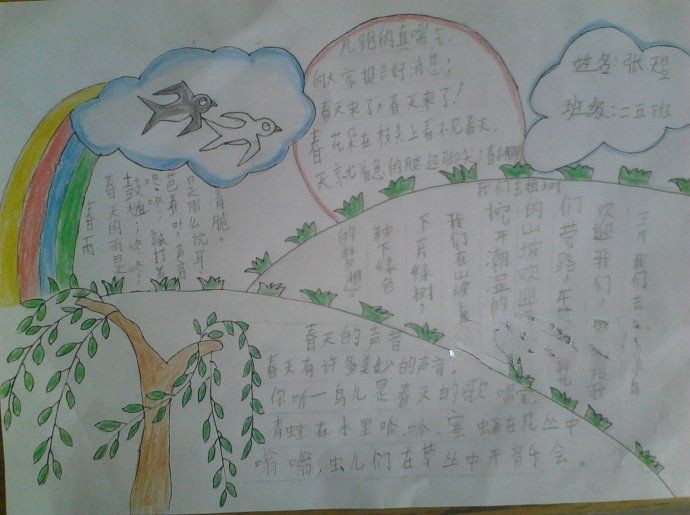 儿跑的真喘气,
向大家报告好消息;
春天来了,春天来了!
春花朵在枝头上看不见春天,
姓名:张煜
班级:二五班
春雨
春天的雨是
鼓槌,咚咚!
咚咚,敲打着
芭蕉叶,声音
是那么悦耳
清脆。
三月我们去
欢迎我们,
们带路,
的山坡欢迎
挖开潮湿的
我们在山坡上
下一片绿树,
种下绿色
的梦想。
春天的声音
春天有许多美妙的声音。
你听一鸟儿是春天的歌唱家,
青蛙在水里呱、呱、蜜蜂在花丛中
嗡嗡,虫儿们在草丛中开音乐会。